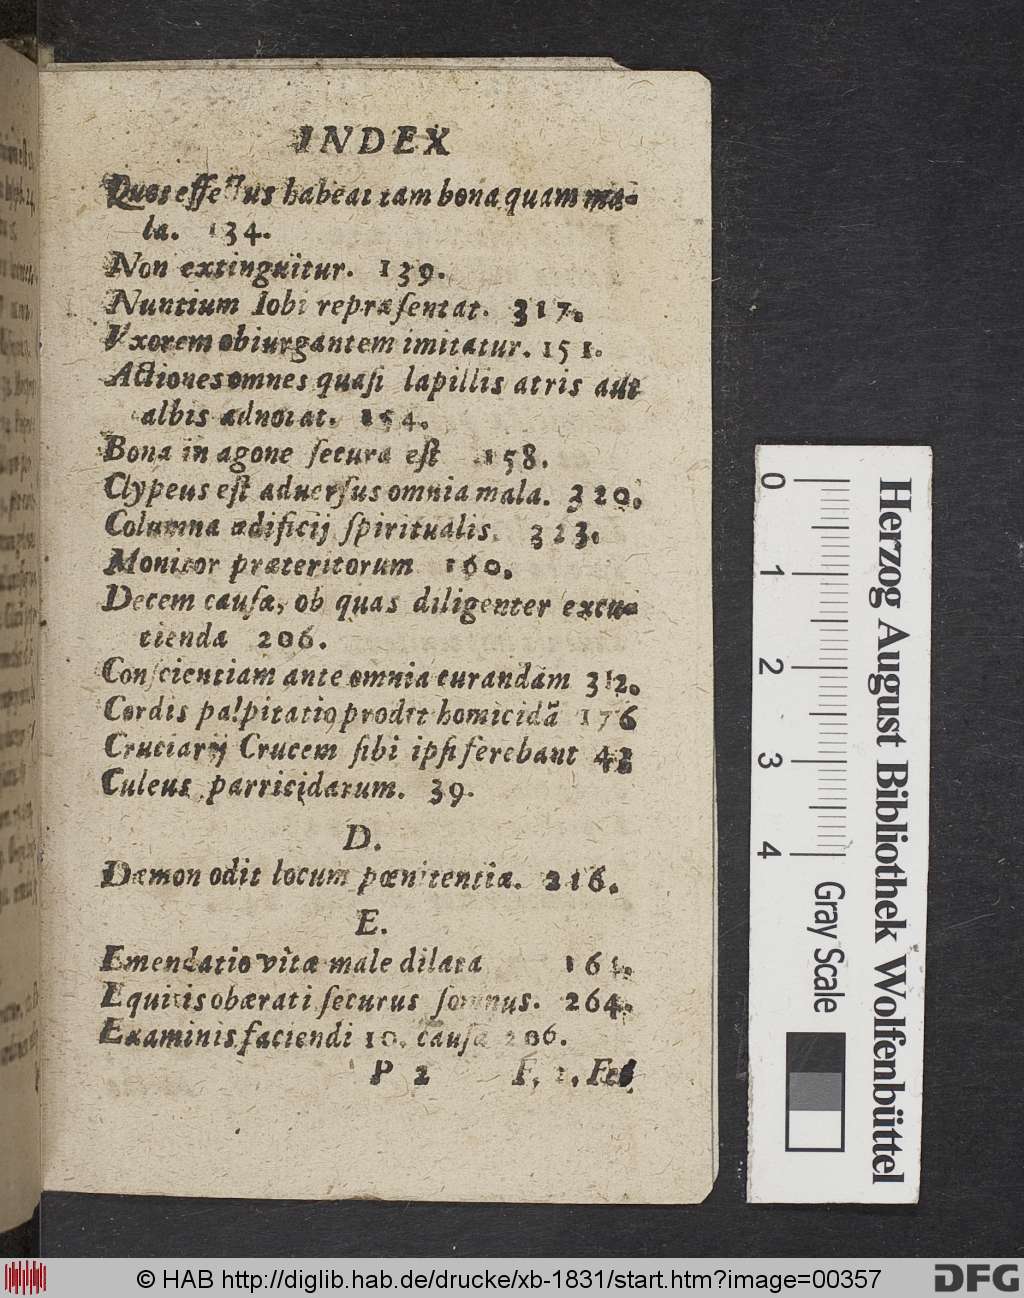 INDEX
Quos effectus habeat tam bona quam ma-
la. 134.
Non extinguitur. 139.
Nuntium Iobi repræſentat. 317.
Vxorem obiurgantem imitatur. 151.
Actiones omnes quaſi lapillis atris aut
albis adnotat. 154.
Bona in agone ſecura eſt 158.
Clypeus eſt aduerſus omnia mala. 320.
Columna ædificij ſpiritualis. 323.
Monitor præteritorum 160.
Decem cauſæ, ob quas diligenter excu-
tienda 206.
Conſcientiam ante omnia curandam 312.
Cordis palpitatio prodit homicidã 176
Cruciarij Crucem ſibi ipſi ferebant
Culeus parricidarum. 39.
D.
Dæmon odit locum pœnitentiæ. 216.
E.
Emendatio vitæ male dilata 161.
Equitis obærati ſecurus ſomnus. 264.
Examinis faciendi 10. cauſæ 206.
P 2 F.
Herzog August Bibliothek Wolfenbüttel
0 1 2 3 4
Gray Scale
© HAB http://diglib.hab.de/drucke/xb-1831/start.htm?image=00357
DFG